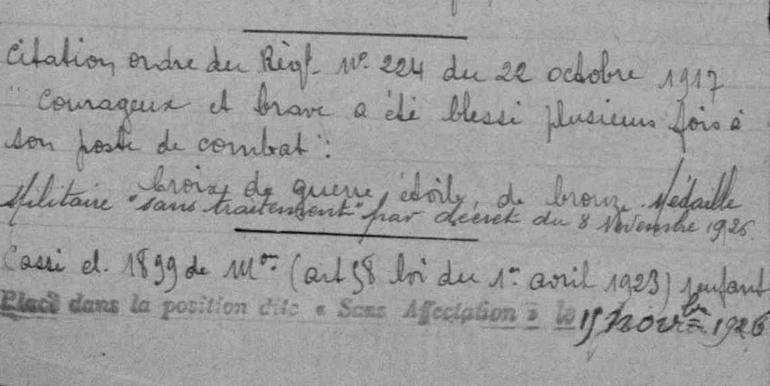 Citation ordre du Régt. N° 224 du 22 octobre 1917
" Courageux et brave a été blessé plusieurs fois à
son poste de combat ".
Croix de guerre, étoile de bronze. Médaille
Militaire "sans traitement" par décret du 8 Novembre 1926.
Passé cl. 1899 de Mon (art 58 loi du 1er avril 1923) 1 enfant
Placé dans la position dite « Sans Affectation » le 15 Novbre 1926